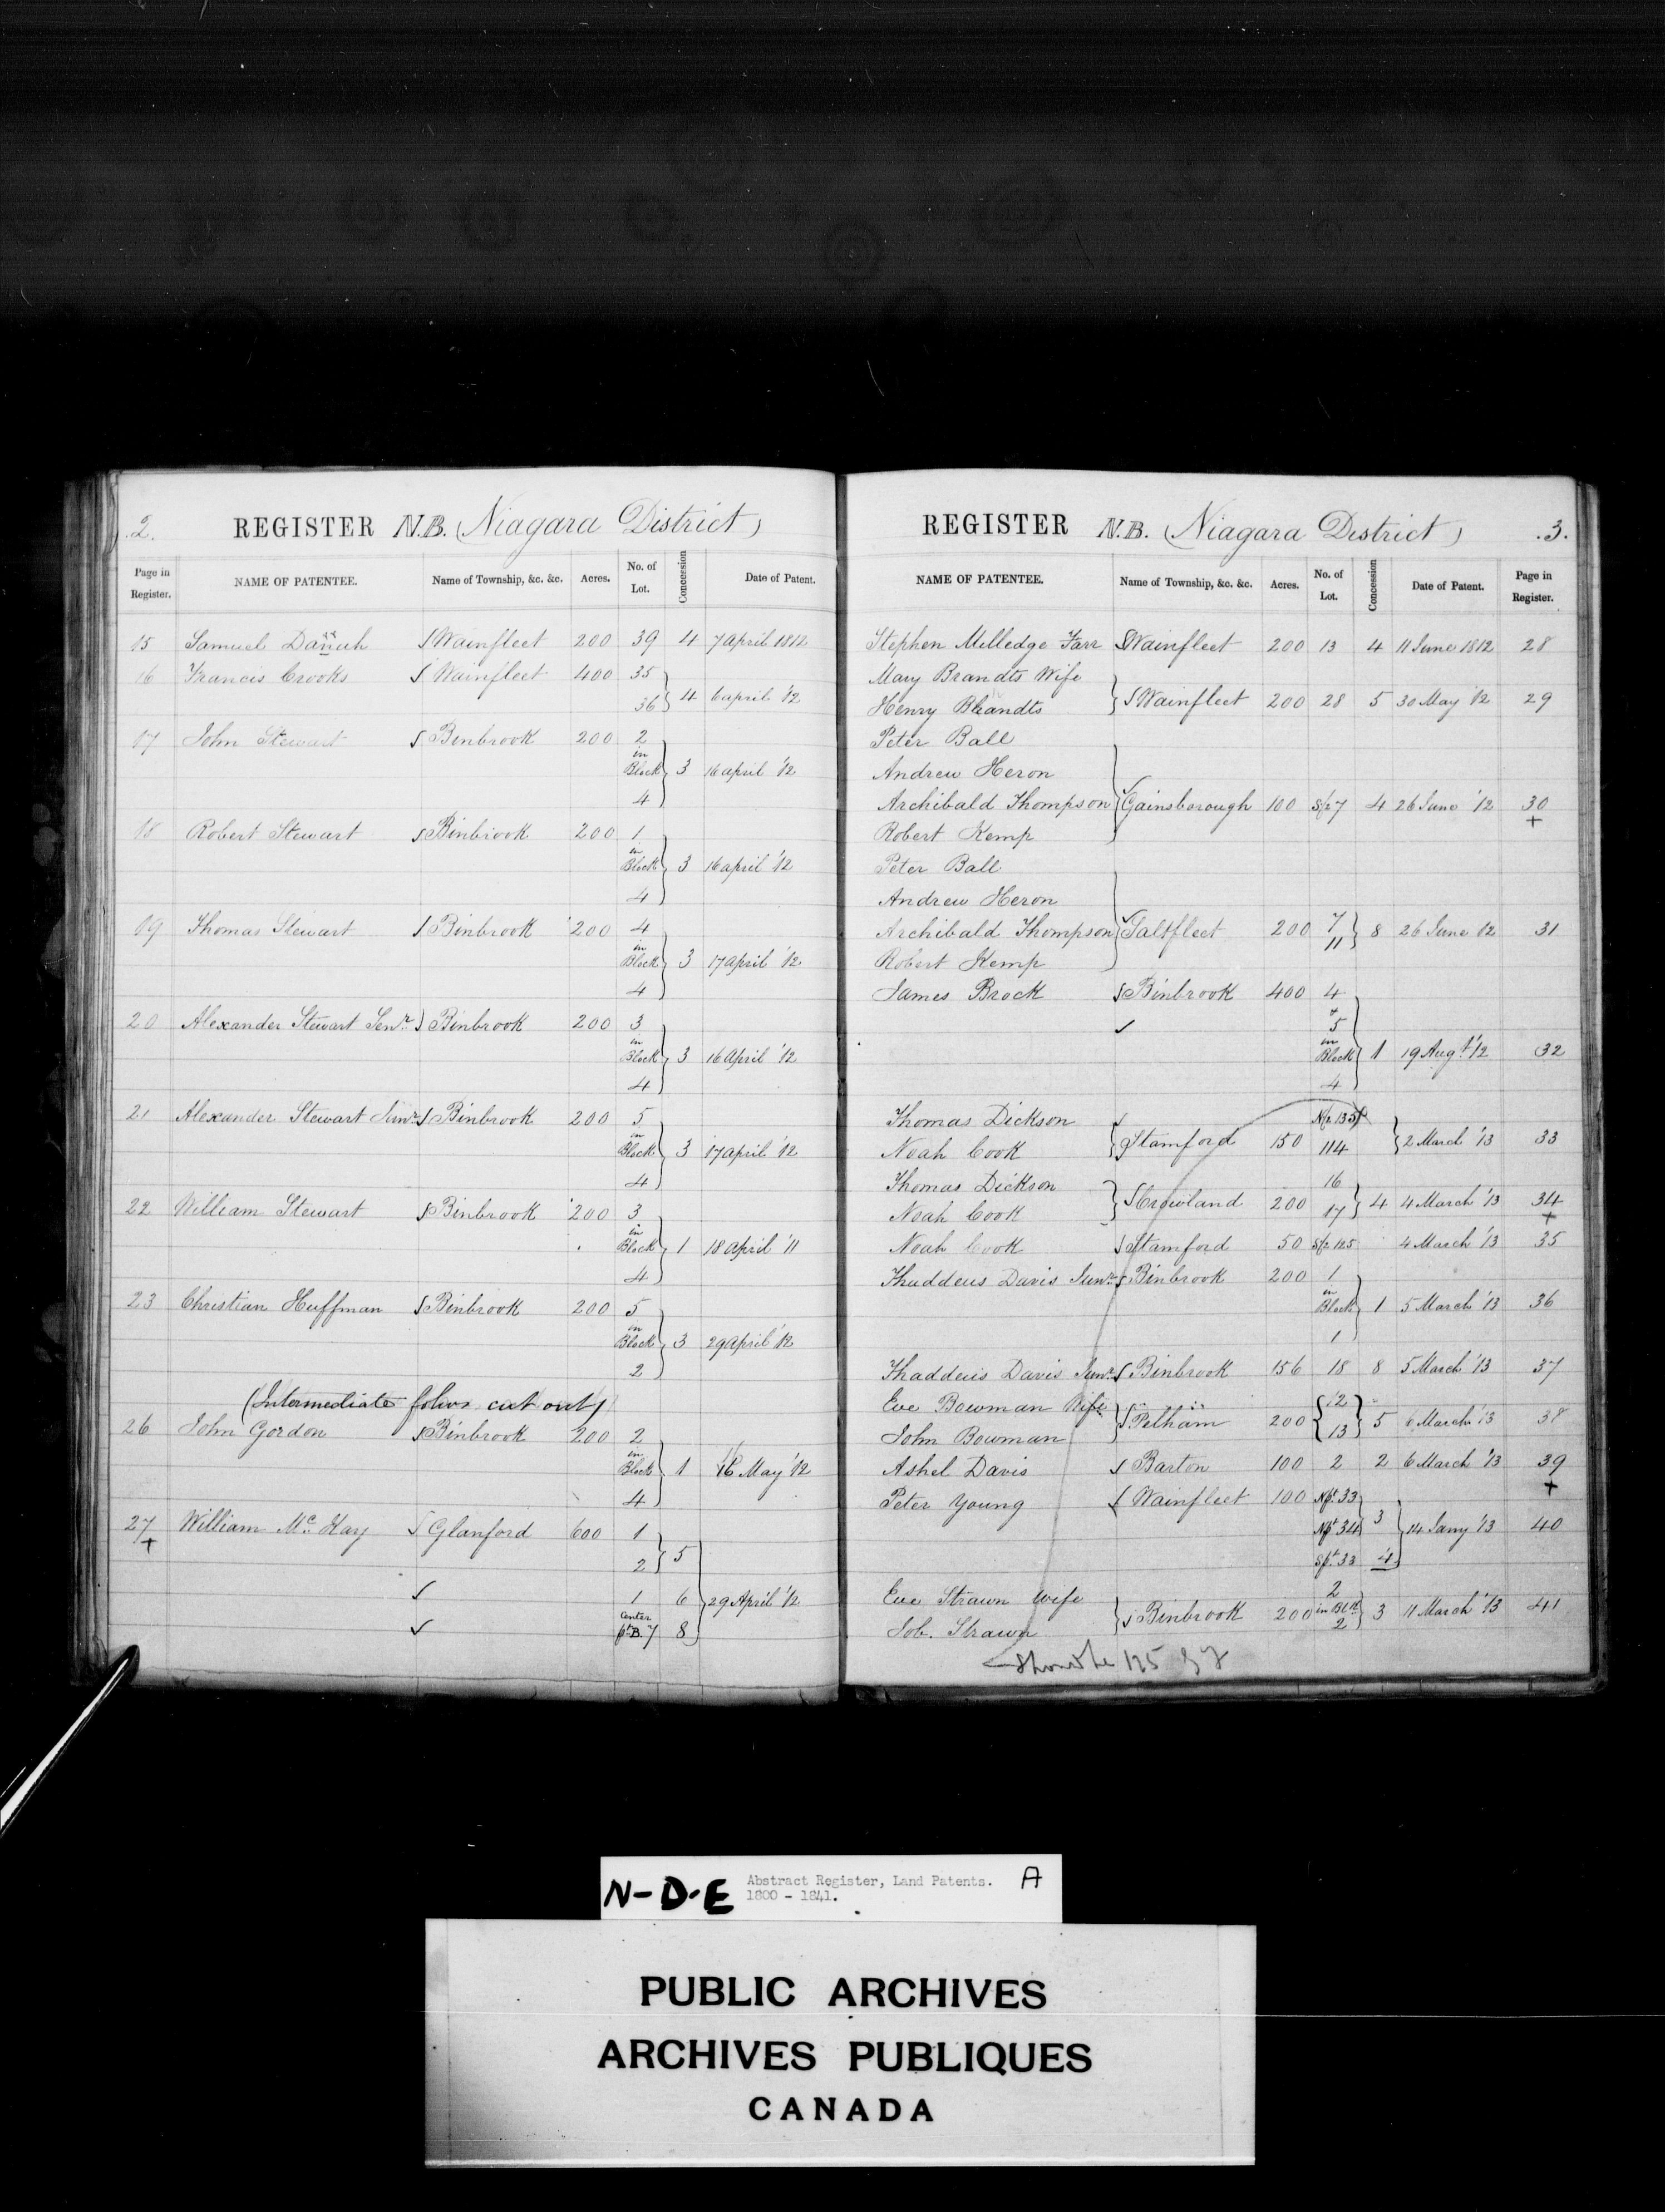 2.
REGISTER N.B. (Niagara District)
Page in Register. NAME OF PATENTEE. Name of Township, &c. &c. Acres. No. of Lot. Concession Date of Patent.
15 Samuel Wainfleet 200 39 4 7 April 1812
16 Francis Crooks Wainfleet 400 35
36 4 6 April '12
17 John Stewart Binbrook 200 2
in
Block 3 16 April '12
4
18 Robert Stewart Binbrook 200 1
in
Block 3 16 April '12
4
19 Thomas Stewart Binbrook 200 4
in
Block 3 17 April '12
4
20 Alexander Stewart Senr. Binbrook 200 3
in
Block 3 16 April '12
4
21 Alexander Stewart Junr. Binbrook 200 5
in
Block 3 17 April '12
4
22 William Stewart Binbrook 200 3
in
Block 1 18 April '11
4
23 Christian Huffman Binbrook 200 5
in
Block 3 29 April '12
2
(Intermediate folios cut out)
26 John Gordon Binbrook 200 2
in
Block 1 16 May '12
4
27 William Mc. Kay Glanford 600 1
+ 2 5
✓ 1 6 29 April '12
✓ Center pt. B. 7 8
REGISTER N.B. (Niagara District) .3.
NAME OF PATENTEE. Name of Township, &c. &c. Acres. No. of Lot. Concession Date of Patent. Page in Register.
Stephen Milledge Farr Wainfleet 200 13 4 11 June 1812 28
Mary Brandts Wife
Henry Brandts Wainfleet 200 28 5 30 May '12 29
Peter Ball
Andrew Heron
Archibald Thompson Gainsborough 100 S/p 7 4 26 June '12 30
Robert Kemp +
Peter Ball
Andrew Heron
Archibald Thompson Saltfleet 200 7 11 8 26 June 12 31
Robert Kemp
James Brock Binbrook 400 4
✓ & 5
in
Block 1 19 Augt. '12 32
4
Thomas Dickson ✓ N/p 135
Noah Cook Stamford 150 114 2 March '13 33
Thomas Dickson 16
Noah Cook Crowland 200 17 4 4 March '13 34
+
Noah Cook Stamford 50 S/p 125 4 March '13 35
Thaddeus Davis Junr. Binbrook 200 1
in
Block 1 5 March '13 36
1
Thaddeus Davis Junr. Binbrook 156 18 8 5 March '13 37
Eve Bowman Wife 12
John Bowman Pelham 200 13 5 6 March '13 38
Ashel Davis Barton 100 2 2 6 March '13 39
+
Peter Young Wainfleet 100 Npt. 33
Npt 34 3 14 Jany '13 40
Spt. 33 4
Eve Strawn Wife 2
Job. Strawn Binbrook 200 in Blk 2 3 11 March '13 41
Should be 125
N-D-E Abstract Register, Land Patents. A
1800 - 1841.
PUBLIC ARCHIVES
ARCHIVES PUBLIQUES
CANADA